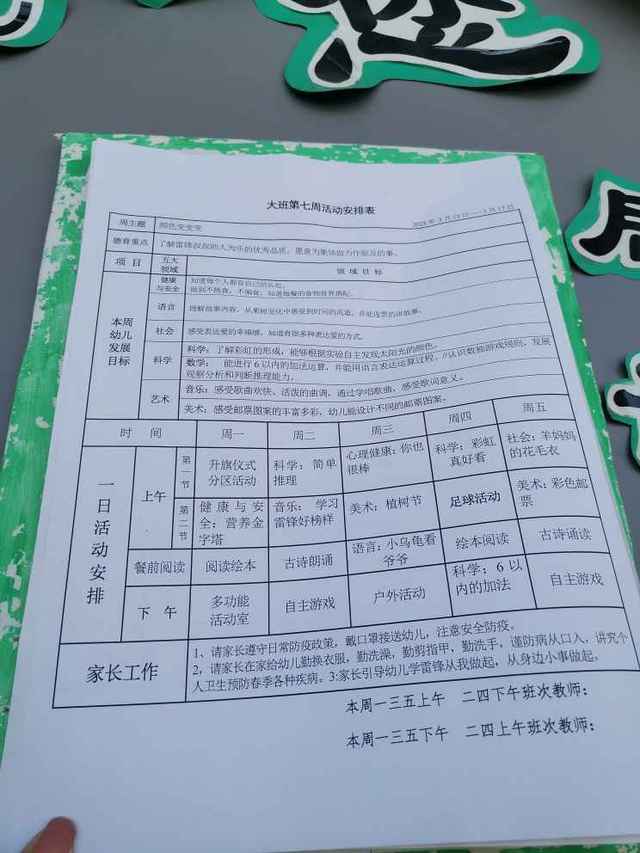 大班第七周活动安排表
周主题 颜色变变变
德育重点 了解雷锋叔叔助人为乐的优秀品质，愿意为集体做力所能及的事。
项 目 五大领域 领 域 目 标
本周幼儿发展目标
健康与安全 知道每个人都有自己的长处。
做到不挑食、不偏食，知道每餐的食物营养搭配。
语言 理解故事内容，从
社会 感受表达爱的幸福感，知道有很多种表达爱的方式。
科学 科学：了解彩虹的形成，能够根据实验自主发现太阳光的颜色。
数学： 能进行6以内的加法运算，并能用语言表达运算过程。//认识数独游戏规则，发展
观察分析和判断推理能力。
艺术 音乐：感受歌曲欢快、活泼的曲调，通过学唱歌曲，感受歌词意义。
美术：感受邮票图案的丰富多彩，幼儿能设计不同的邮票图案。
时 间 周一 周二 周三 周四 周五
一日活动安排
上午 第一节 升旗仪式分区活动 科学：简单推理 心理健康：你也很棒 科学：彩虹真好看 社会：羊妈妈的花毛衣
第二节 健康与安全：营养金字塔 音乐： 学习雷锋好榜样 美术：植树节 足球活动 美术：彩色邮票
餐前阅读 阅读绘本 古诗朗诵 语言：小乌龟看爷爷 绘本阅读 古诗诵读
下 午 多功能活动室 自主游戏 户外活动 科学：6以内的加法 自主游戏
家长工作
1、请家长遵守日常防疫政策，戴口罩接送幼儿，注意安全防疫。
2，请家长在家给幼儿勤换衣服，勤洗澡，勤剪指甲，勤洗手，谨防病从口入，讲究个
人卫生预防春季各种疾病。3:家长引导幼儿学雷锋从我做起，从身边小事做起。
本周一三五上午 二四下午班次教师：
本周一三五下午 二四上午班次教师：
周